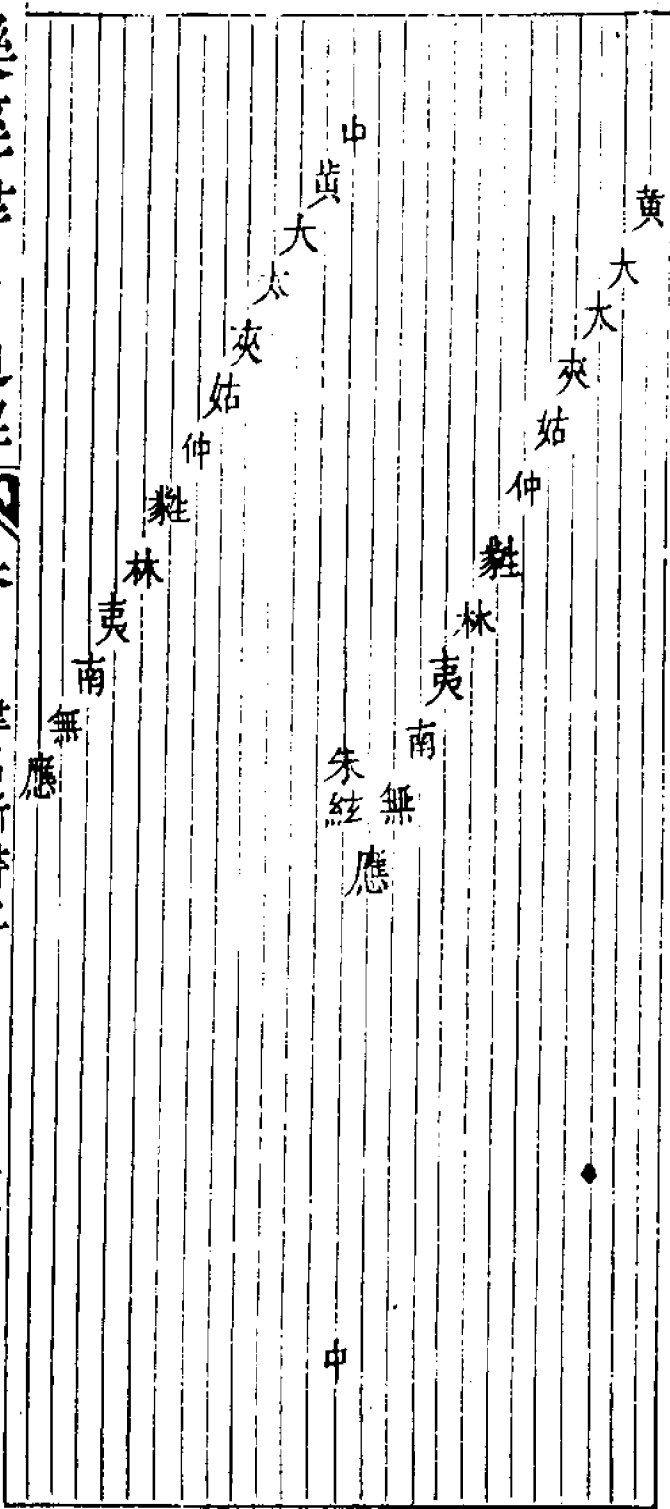 黄
大
太
夾
姑
仲
蕤
林
夷
南
無
應
中
朱絃
中
黄
大
太
夾
姑
仲
蕤
林
夷
南
無
應